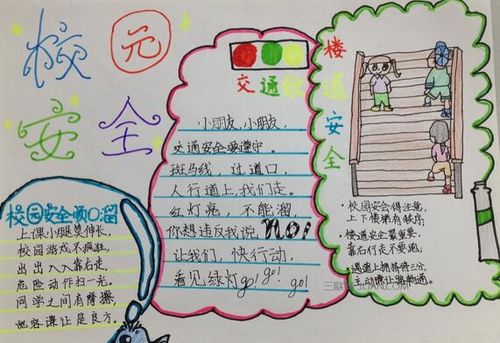 校园
安全
校园安全顺口溜
上课小腿莫伸长,
校园游戏不疯狂,
出出入入靠右走,
危险动作扫一光。
同学之间有摩擦,
宽容谦让是良方。
交通歌
小朋友,小朋友,
交通安全要遵守。
斑马线,过道口,
人行道上我们走。
红灯亮,不能溜,
你想违反我说NO!
让我们,快行动,
看见绿灯go! go! go!
楼道安全
·校园安会得注意,
上下楼梯有秩序;
·楼道安全最重要,
靠右行走不要跑;
·遇道上拥挤停三分,
主动谦让路畅通。